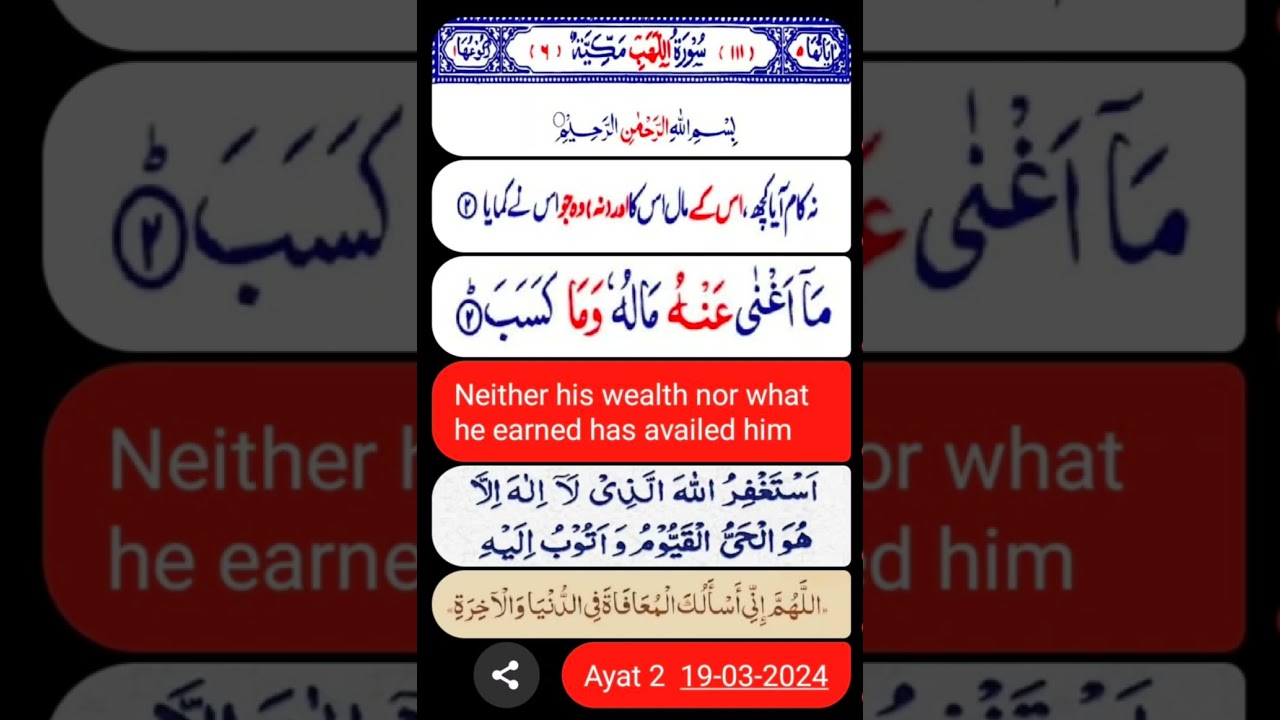 اٰیَاتُهَا ٥ (١١١) سُوْرَةُ اللَّهَبِ مَكِّیَّةٌ (٦) رُكُوْعُهَا ١
بِسْمِ اللّٰهِ الرَّحْمٰنِ الرَّحِیْمِ
نہ کام آیا کچھ، اس کے مال اس کا اور (نہ) وہ جو اس نے کمایا ②
مَاۤ اَغْنٰی عَنْهُ مَالُهٗ وَمَا كَسَبَ ؕ②
Neither his wealth nor what
he earned has availed him
اَسْتَغْفِرُ اللّٰهَ الَّذِیْ لَاۤ اِلٰهَ اِلَّا
هُوَ الْحَیُّ الْقَیُّوْمُ وَ اَتُوْبُ اِلَیْهِ
«اللَّهُمَّ إِنِّي أَسْأَلُكَ الْمُعَافَاةَ فِي الدُّنْيَا وَالْآخِرَةِ»
Ayat 2 19-03-2024